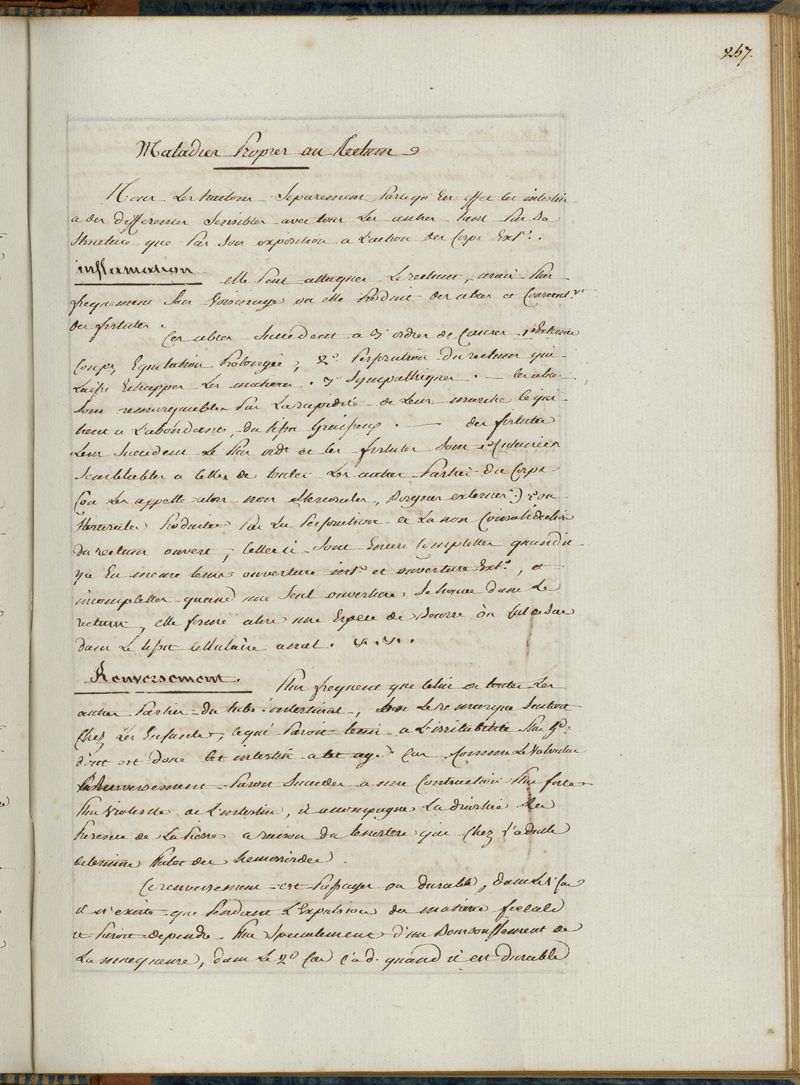 247.
Maladies Propres au Rectum
Nous Les traitons Separement Parcequ'En effet cet intestin
a des differences Sensibles avec tous Les autres tant Par Sa
Structure que Par Son exposition a L'action des Corps Ext.s.
inflamation elle Peut attaquer Le rectum, mais Plus
frequement Son Voisinage ou elle Produit des abces et
des fistules.
Ces abces Succedent a 3 ordres de Causes 1° Externes
Coups, Equitation Prolongée; 2° Perforation du rectum qui
Laisse Echapper Les matieres. 3° Sympathiques. — les abces
Sont remarquables Par La rapidité de Leur marche ce qui
tient a L'abondance du tissu Graisseux. — des fistules
Leur Succedent Le Plus ord.t et les fistules Sont 1° Cutanées
Semblables a celles de toutes Les autres Parties du Corps
(on Les appelle alors non Stercorales, borgnes externes) 2° ou
Stercorales Produites Par La Perforation et La non Consolidation
du rectum ouvert; celles ci Sont Encore Complettes quand il
y a En meme tems ouverture int.e et ouverture Ext.e, et
incomplettes quand une Seul ouverture Se trouve dans Le
rectum, elle forme alors une Espece de Bourse ou Cul de Sac
dans Le tissu Cellulaire anal.
Renversement. Plus frequent que celui de toutes Les
autres Parties du tube intestinal, on Le remarque Surtout
Chez Les Enfants, ce qui Paroit tenir a L'irritabilité Plus g.de
dont est doué cet intestin a cet age car Comme Le Volvulus
Le renversement Paroit Succeder a une Contraction Plus forte
Plus Violente de L'intestin, il accompagne La diarrhée La
Presence de La Pierre a raison du tenesme que Chez L'adulte
determine l'etat des hemorroides.
Ce renversement est Passager ou durable, dans Le 1er Cas
il n'existe que Pendant L'Expulsion des matieres fecales
et Paroit dependre Plus Specialement d'un Boursoufflement de
La muqueuse, dans Le 2° Cas c'a d. quand il est durable